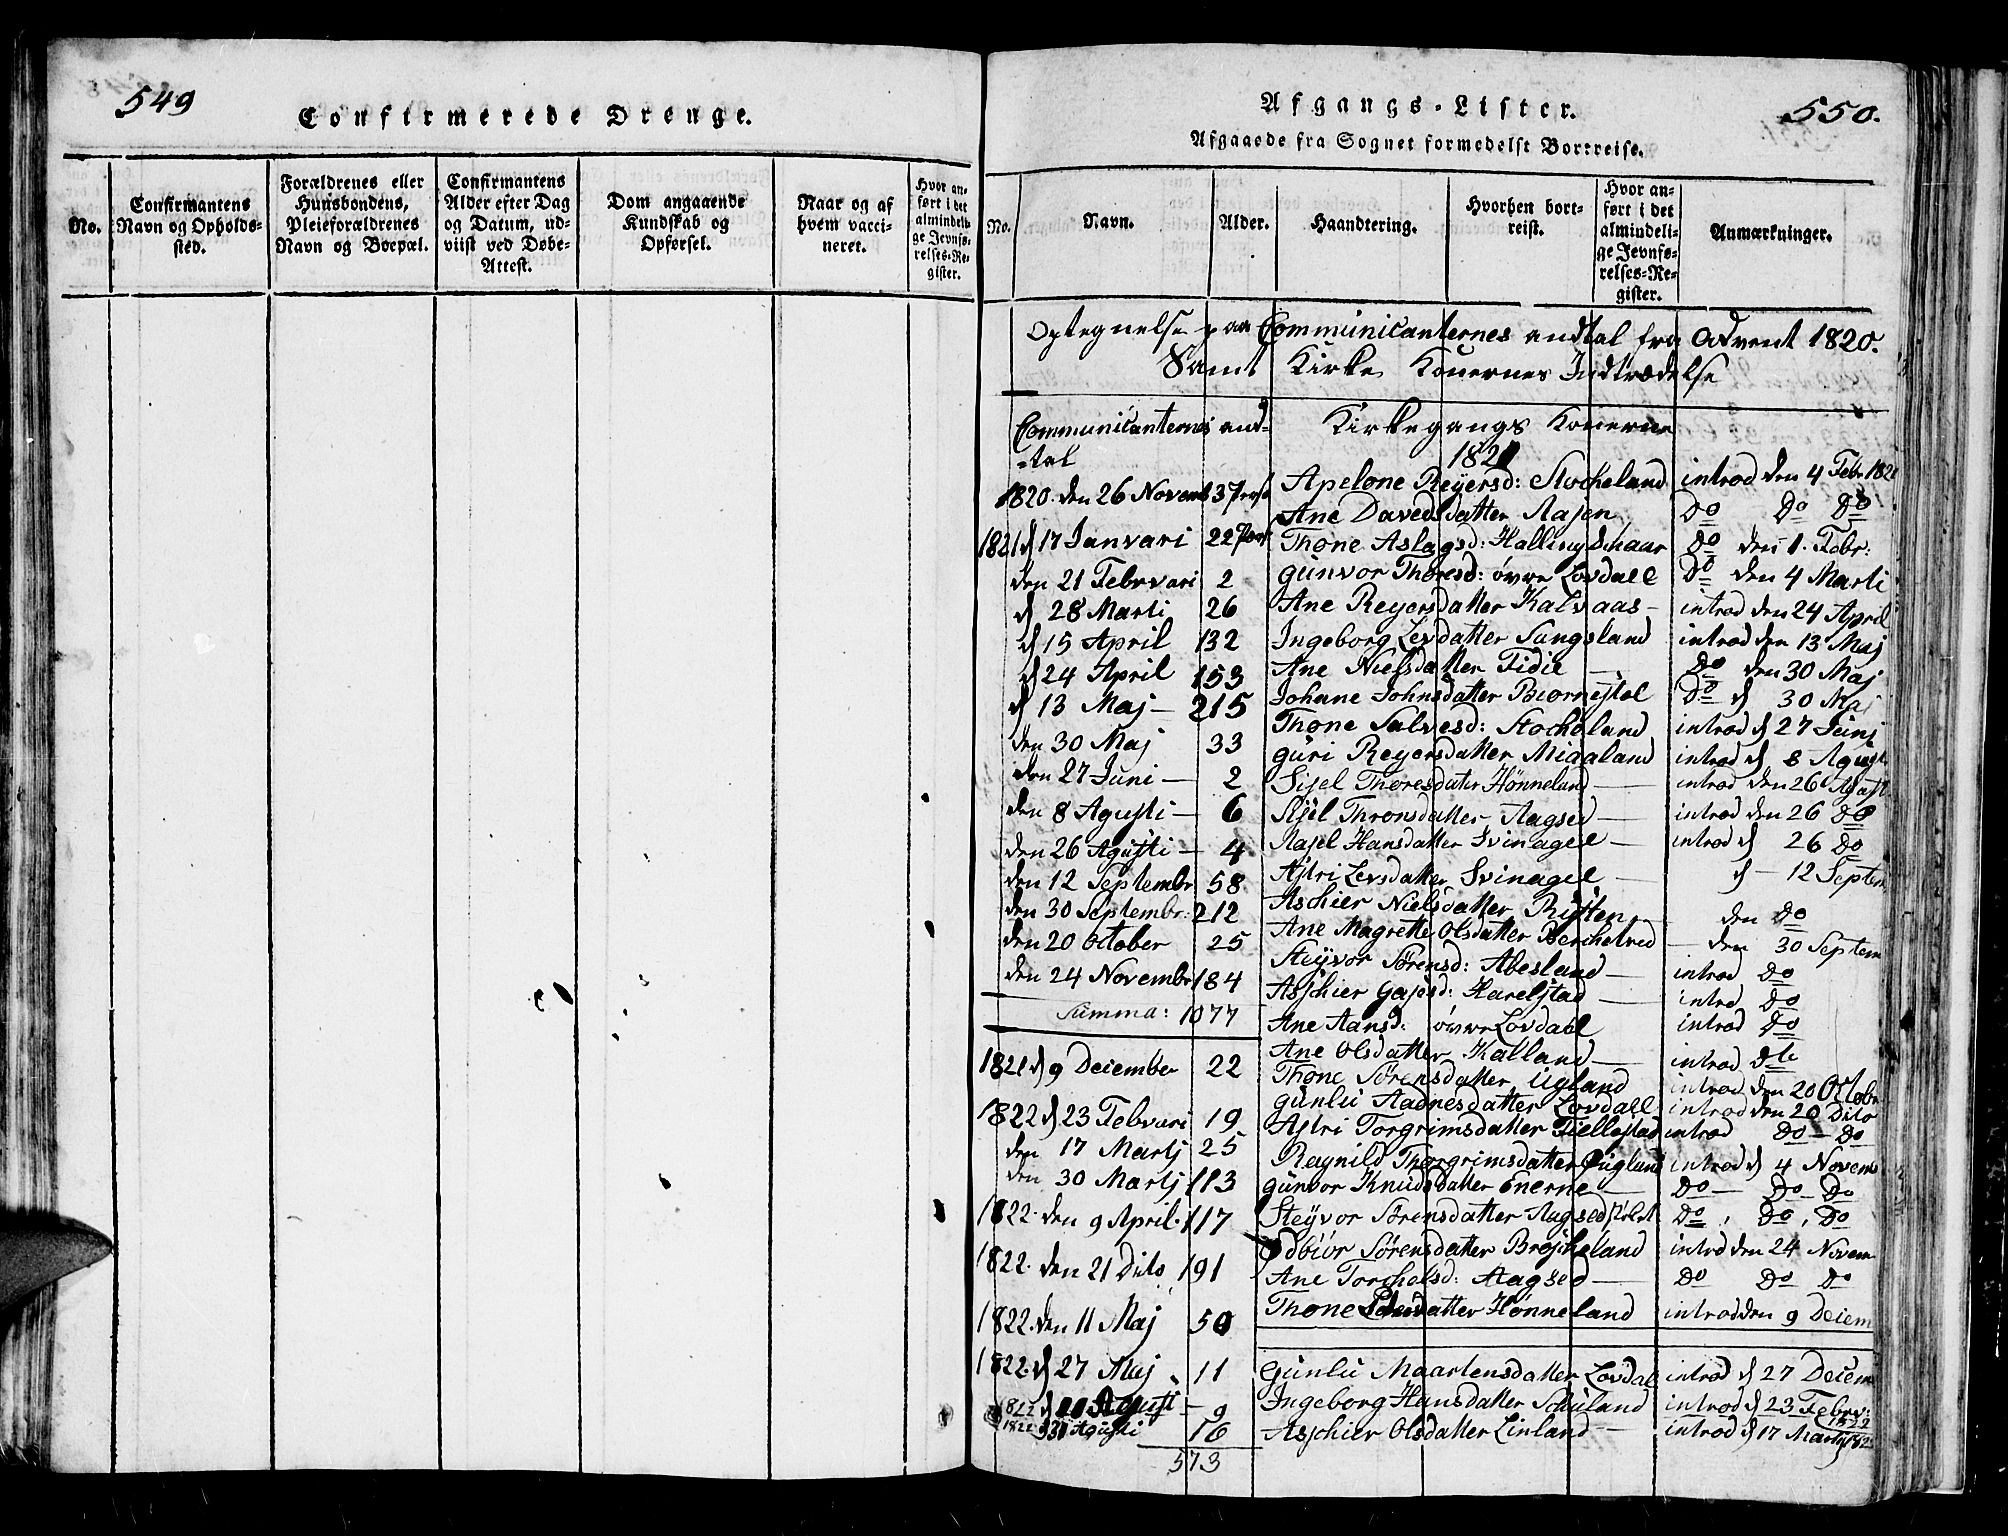 549
Confirmerede Drenge.
No.
Confirmantens Navn og Opholds-sted.
Forældrenes eller Huusbondens, Pleieforældrenes Navn og Boepæl.
Confirmantens Alder efter Dag og Datum, ud-viist ved Døbe-Attest.
Dom angaaende Kundskab og Opførsel.
Naar og af hvem vacci-neret.
Hvor an-ført i det almindeli-ge Jevnfø-relses-Re-gister.
550.
Afgangs-Lister.
Afgaaede fra Sognet formedelst Bortreise.
No.
Navn.
Alder.
Haandtering.
Hvorhen bort-reist.
Hvor an-ført i det almindeli-ge Jevnfø-relses-Re-gister.
Anmærkninger.
Optegnelse paa Communicanternes andtal fra Advent 1820.
Samt Kirke Konernes Indtrædelse
Communicanternes and-
-tal
1820. den 26 Novemb 37 pers
1821 d 17 Janvari 22 Pers
den 21 Febrvari 2
d 28 Marti 26
d 15 April 132
d 24 April 153
d 13 Maj - 215
den 30 Maj 33
den 27 Juni - 2
den 8 Agusti - 6
den 26 Agusti - 4
den 12 Septembr 58
den 30 Septembr: 212
den 20 October 25
den 24 Novembr 184
Summa: 1077
1821 d 9 Deiember 22
1822 d 23 Febvari 19
den 17 Martj 25
den 30 Martj 113
1822. den 9 April. 117
1822. den 21 Dito 191
1822. den 11 Maj 50
1822. d 27 Maj 11
1822 d Agust - 9
1822 Agusti 16
573
Kirkegangs Konerne
1821
Apelone Reyersd: Stocheland introd den 4 Febr 1821
Ane Daveds datter Aasen Do Do Do
Thone Aslagsd: Hallingschaar Do den 1. Febr:
Gunvor Thoresd: øvre Lovdall Do den 4 Marti
Ane Reyersdatter Kalvaas - introd den 24 April
Ingeborg Levdatter Sangsland introd den 13 Maj
Ane Nielsdatter Fidie - Do den 30 Maj
Johane Johnsdatter Biørnestøl Do d 30 Maj
Thone Salvesd: Stocheland introd d 27 Junj
Guri Reyersdatter Migaland introd d 8 Agust
Sisel Thoresdatter Hønneland - introd den 26 Agust
Sisel Thronsdatter Aagsed - introd den 26 Do
Aasel Hansdatter Svinagel - introd d 26 Do
Astri Levsdatter Svinagel - d - 12 Septem
Aschier Nielsdatter Rysten - den Do
Ane Magrette Olsdatter Berchetved - den 30 Septem
Steyvor Sørensd: Abesland - introd Do
Aschier Gasesd: Harelstad - introd Do
Ane Aansd: øvre Lovdahl introd Do
Ane Olsdatter Kalland - introd Do
Thone Sørensdatter Ugland introd den 20 Octobr
Gunlu Aadnesdatter Lovdall introd den 20 Dito
Astri Torgrimsdatter Fiellestad introd Do - Do
Raynild Thorgrimsdatter Ougland introd d 4 Novem
Gunvor Knudsdatter Enerne - Do - Do Do
Steyvor Sørensdatter Aagsed Do, Do, Do
Odbiør Sørensdatter Broscheland introd den 24 Novem
Ane Torcholsd: Aagsed - Do Do Do
Thone datter Hønneland introd den 9 Deiem
Gunlu Maartensdatter Lovdal introd d 27 Deiem
Ingeborg Hansdatter Schuland introd d 23 Febrv: 1822
Aschier Olsdatter Linland - introd d 17 Martj 182